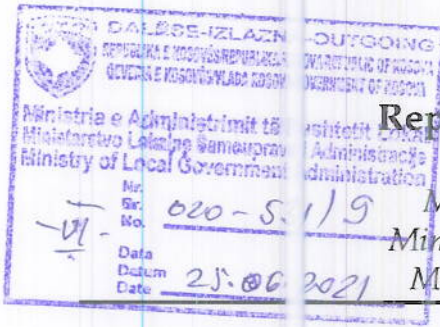 DALËSE-IZLAZNI-OUTGOING
REPUBLIKA E KOSOVËS REPUBLIKA OVA REPUBLIC OF KOSOVA
QEVERIA E KOSOVËS/VLADA KOSOV GOVERNMENT OF KOSOVA
Ministria e Administrimit të ushtetit Lokal
Ministarstvo Lokalne Samouprav Administracije
Ministry of Local Government Administration
Rep
Nr.
Br.
No. 020-5
1/9
M
-VI-
Min
Data
Datum
Date 25.06 2021
M